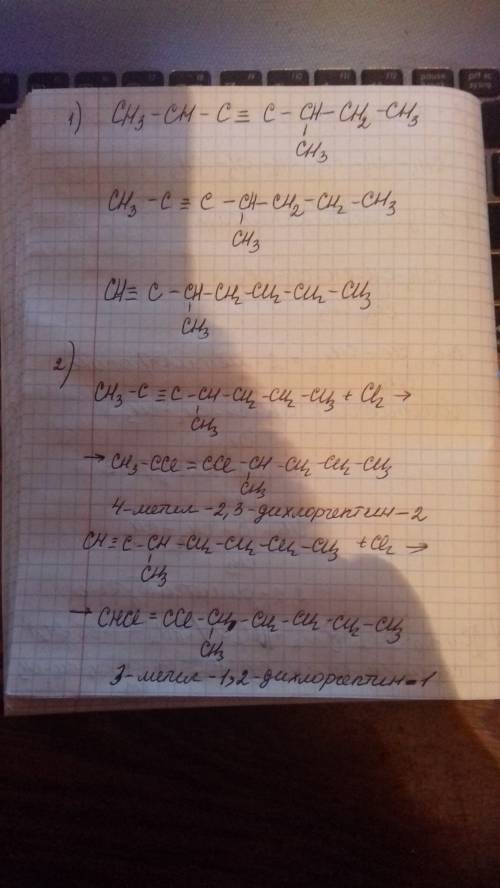 1) CH3 – CH – C ≡ C – CH – CH2 – CH3
CH3
CH3 – C ≡ C – CH – CH2 – CH2 – CH3
CH3
CH ≡ C – CH – CH2 – CH2 – CH2 – CH3
CH3
2)
CH3 – C ≡ C – CH – CH2 – CH2 – CH3 + Cl2 →
CH3
→ CH3 – CCl = CCl – CH – CH2 – CH2 – CH3
CH3
4-метил-2,3-дихлоргептин-2
CH ≡ C – CH – CH2 – CH2 – CH2 – CH3 + Cl2 →
CH3
→ CHCl = CCl – CH – CH2 – CH2 – CH2 – CH3
CH3
3-метил-1,2-дихлоргептин-1